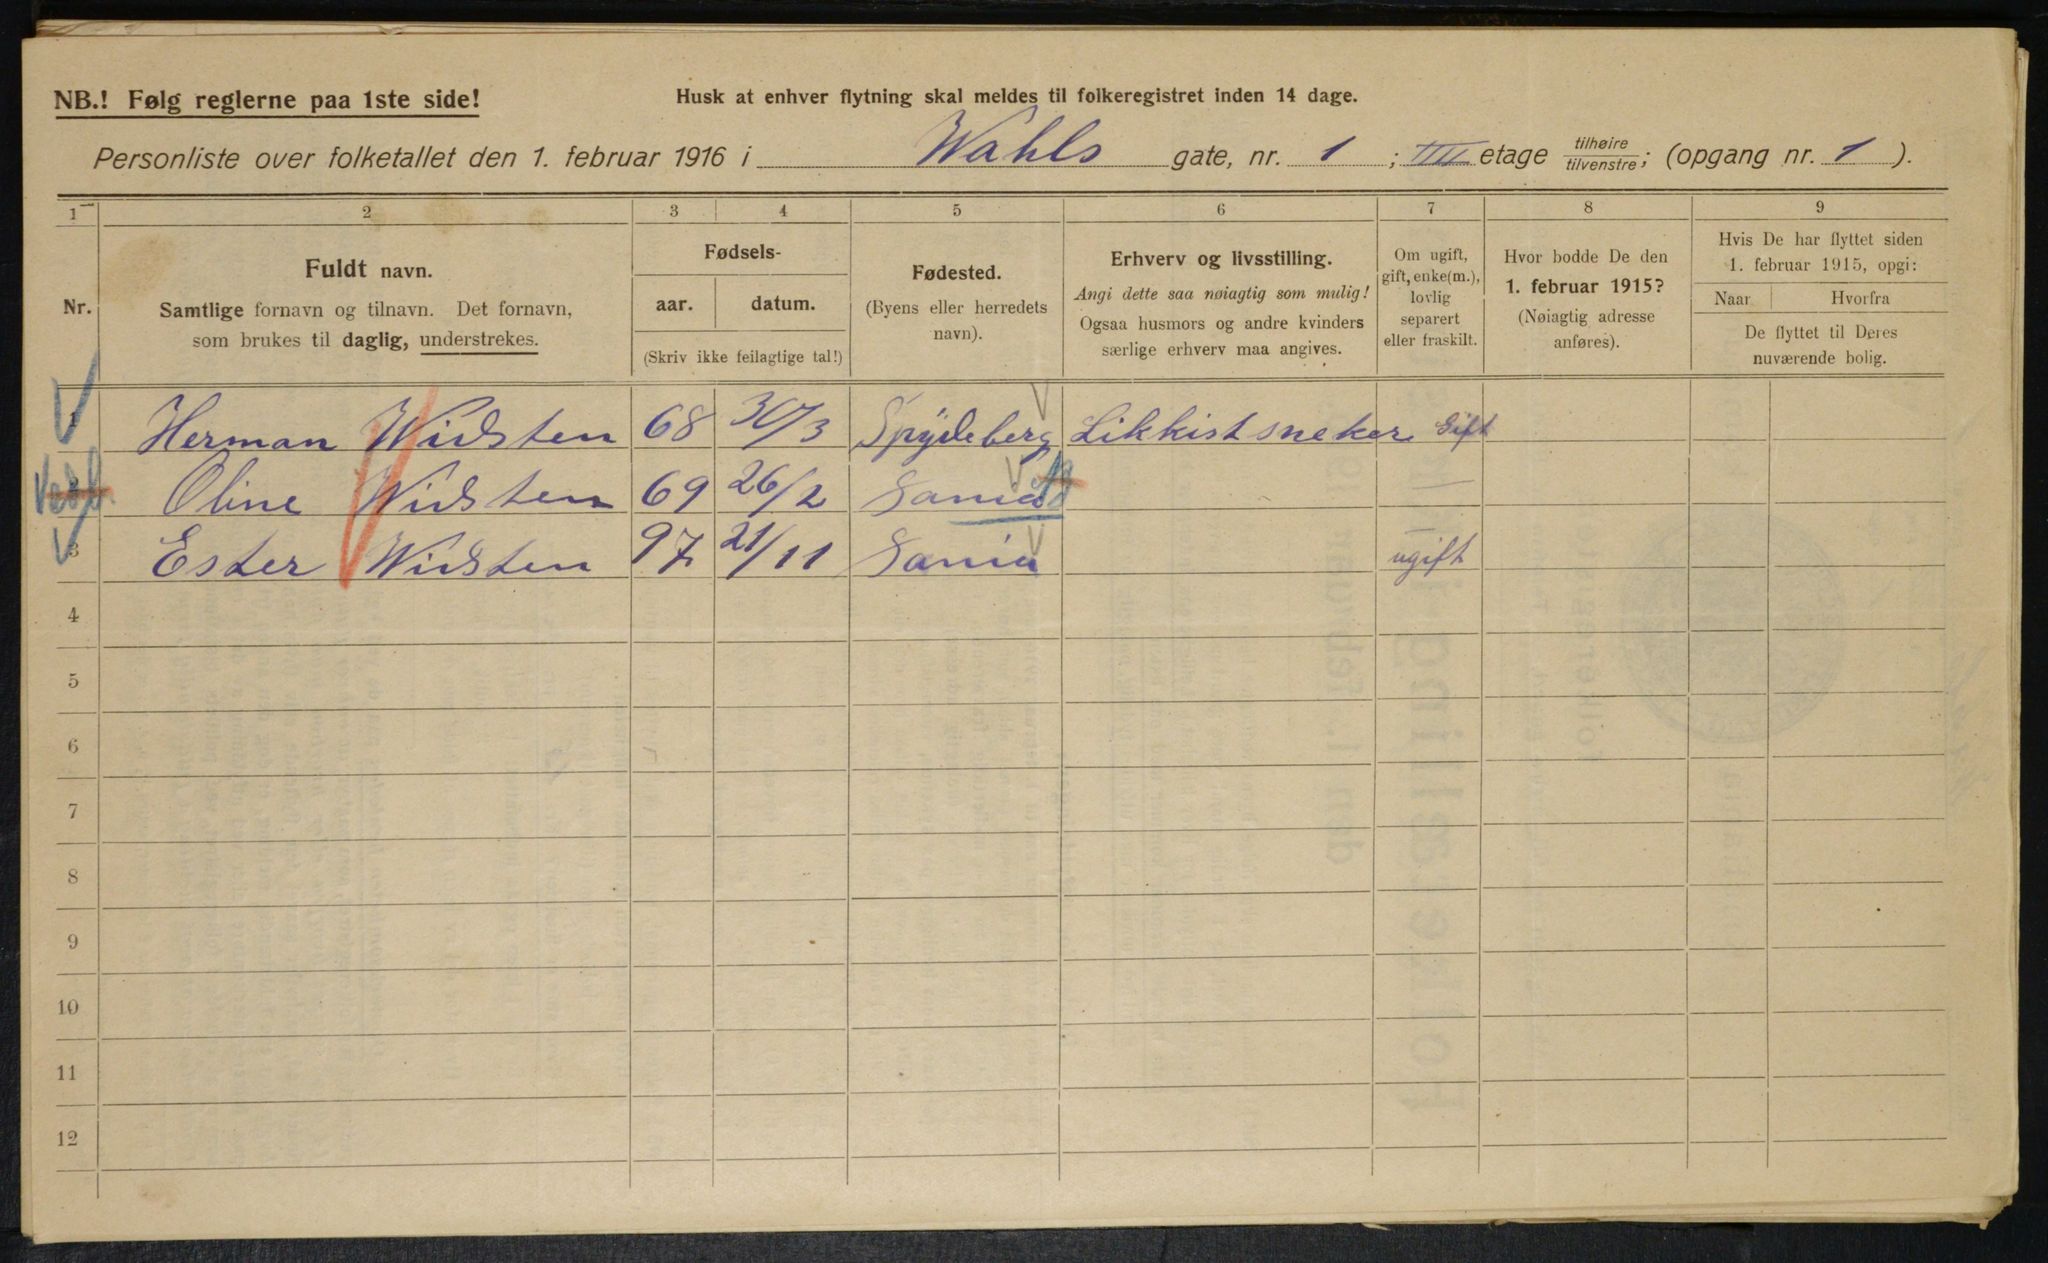 NB.! Følg reglerne paa 1ste side!
Husk at enhver flytning skal meldes til folkeregistret inden 14 dage.
Personliste over folketallet den 1. februar 1916 i Wahls gate, nr. 1; III etage tilhøire tilvenstre; (opgang nr. 1).
1 2 3 4 5 6 7 8 9
Nr.
Fuldt navn.
Samtlige fornavn og tilnavn. Det fornavn,
som brukes til daglig, understrekes.
Fødsels-
aar. datum.
(Skriv ikke feilagtige tal!)
Fødested.
(Byens eller herredets
navn).
Erhverv og livsstilling.
Angi dette saa nøiagtig som mulig!
Ogsaa husmors og andre kvinders
særlige erhverv maa angives.
Om ugift,
gift, enke(m.),
lovlig
separert
eller fraskilt.
Hvor bodde De den
1. februar 1915?
(Nøiagtig adresse
anføres).
Hvis De har flyttet siden
1. februar 1915, opgi:
Naar Hvorfra
De flyttet til Deres
nuværende bolig.
1 Herman Widsten 68 30/3 Spydeberg Likkistsneker Gift
2 Oline Widsten 69 26/2
3 Ester Widsten 97 21/11 ugift
4
5
6
7
8
9
10
11
12